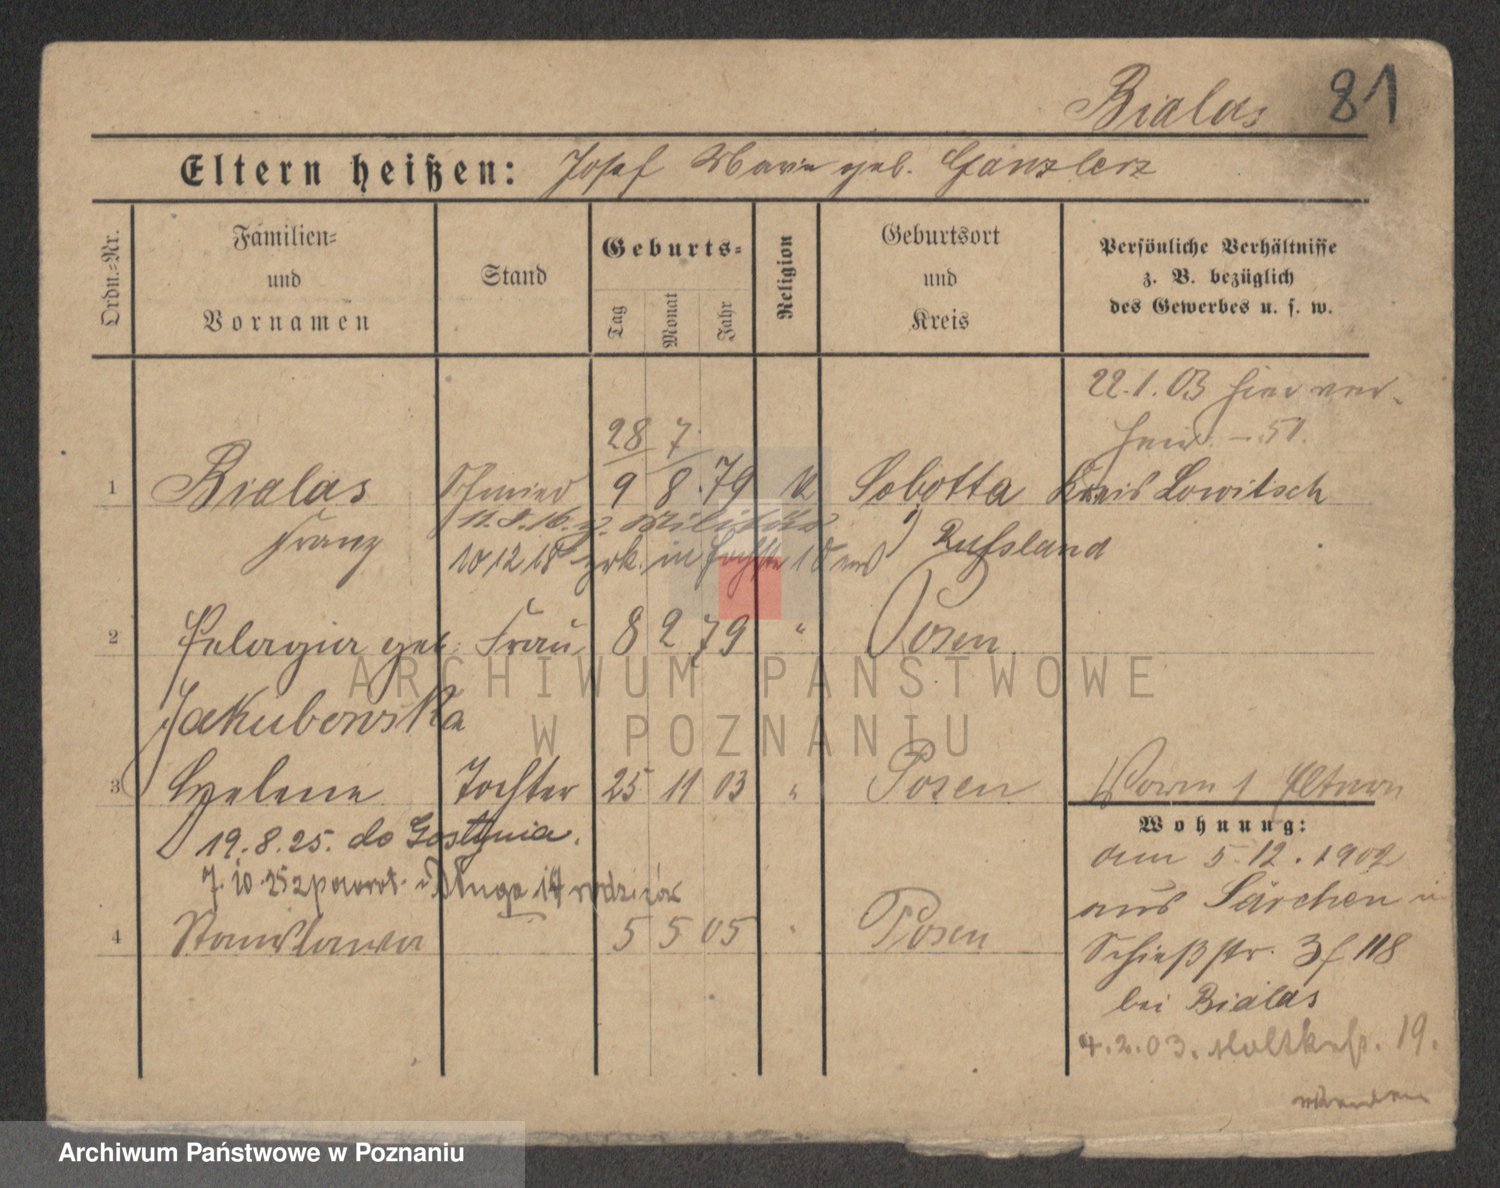 Bialas 81
Eltern heißen: Josef Marie geb. Ganzlerz
Ordn.=Nr.
Familien=
und
Vornamen
Stand
Geburts=
Tag
Monat
Jahr
Religion
Geburtsort
und
Kreis
Persönliche Verhältnisse
z. B. bezüglich
des Gewerbes u. s. w.
22.1.03 hier ver-
heir. - 51.
28 7.
1 Bialas Schmied 9 8. 79 k Sobotta Kreis Lowitsch
Franz 11.8.16. z. Militär Russland
10 12 18 zrk. in
2 Pelagia geb. Frau 8 2 79 " Posen
Jakubowska
3 Helene Tochter 25 11 03 " Posen
19.8.25. do Gostynia.
7.10.25 z powrot. Długa 14 rodziców
4 Stanislawa 5 5 05 " Posen
Wohnung:
am 5.12.1902
aus Särchen in
Schießstr. 3 f 118
bei Bialas
4.2.03. Moltkestr. 19.
ARCHIWUM PAŃSTWOWE
W POZNANIU
Archiwum Państwowe w Poznaniu